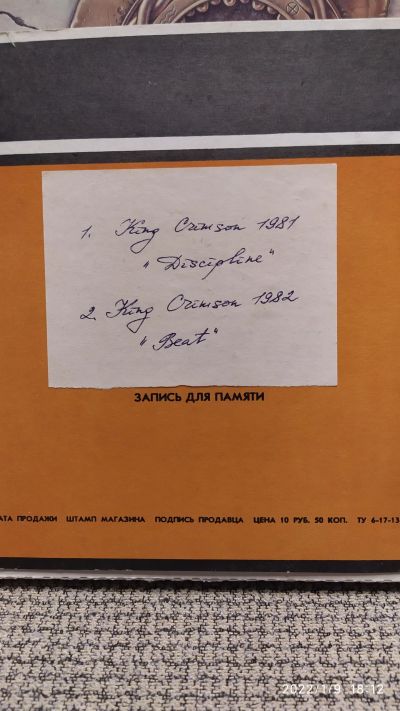 1. King Crimson 1981
"Discipline"
2. King Crimson 1982
"Beat"
ЗАПИСЬ ДЛЯ ПАМЯТИ
АТА ПРОДАЖИ ШТАМП МАГАЗИНА ПОДПИСЬ ПРОДАВЦА ЦЕНА 10 РУБ. 50 КОП. ТУ 6-17-13
2022/1/9 18:12